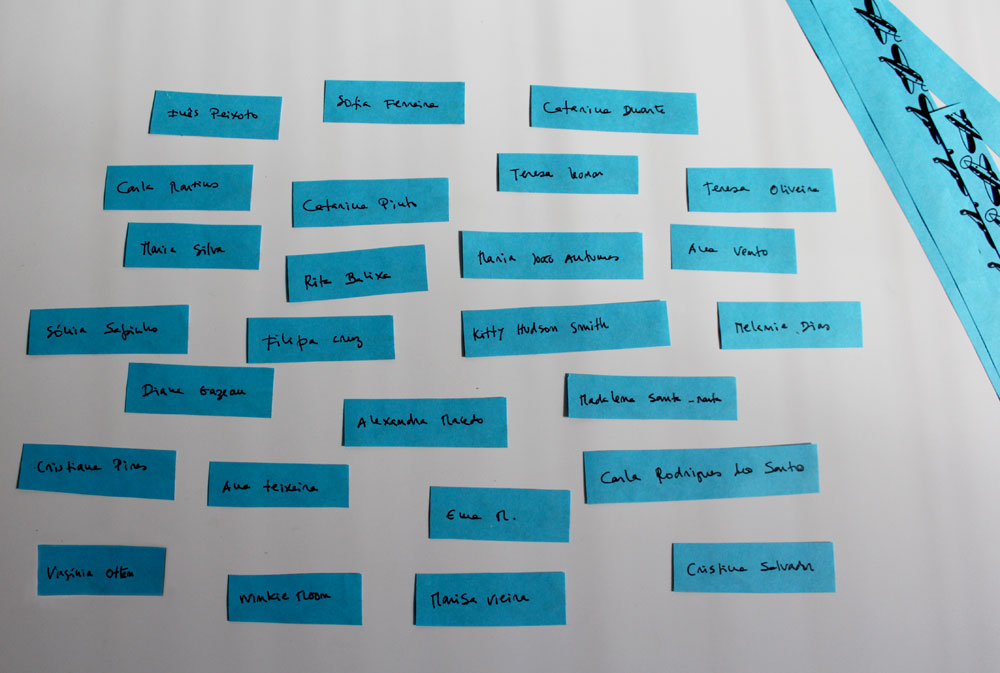 Inês Peixoto
Sofia Ferreira
Catarina Duarte
Carla Martins
Catarina Pinto
Teresa
Teresa Oliveira
Maria Silva
Rita Balixa
Maria João Antunes
Ana Vento
Sónia Sapinho
Filipa Cruz
Kitty Hudson Smith
Melania Dias
Diane Gazeau
Alexandra Macedo
Madalena Santa-Marta
Cristiana Pires
Ana teixeira
Ema M.
Carla Rodrigues do Santo
Virgínia Otten
Winkie Moon
Marisa Vieira
Cristina Salvador